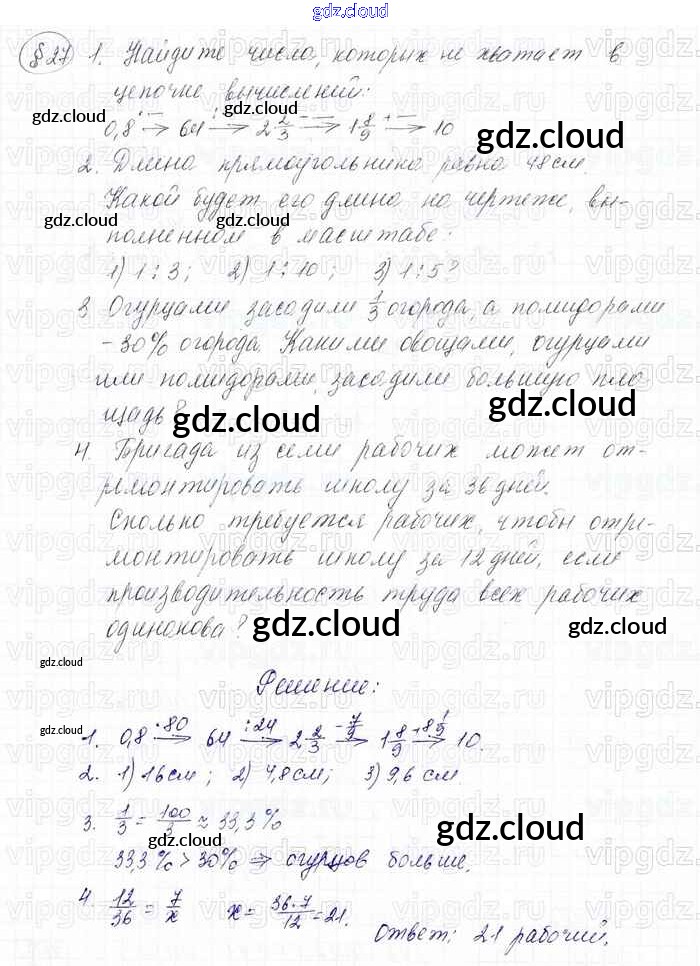 gdz.cloud
§27 1. Найдите числа, которых не хватает в
цепочке вычислений:
0,8 ·—→ 64 :—→ 2 2/3 -—→ 1 8/9 +—→ 10
2. Длина прямоугольника равна 48 см.
Какой будет его длина на чертеже, вы-
полненном в масштабе:
1) 1:3; 2) 1:10; 3) 1:5?
3. Огурцами засадили 1/3 огорода, а помидорами
- 30% огорода. Какими овощами, огурцами
или помидорами, засадили большую пло-
щадь?
4. Бригада из семи рабочих может от-
ремонтировать школу за 36 дней.
Сколько требуется рабочих, чтобы отре-
монтировать школу за 12 дней, если
производительность труда всех рабочих
одинакова?
Решение:
1. 0,8 ·80→ 64 :24→ 2 2/3 -7/9→ 1 8/9 +8 1/9→ 10.
2. 1) 16 см; 2) 4,8 см; 3) 9,6 см.
3. 1/3 = 100/3 ≈ 33,3%
33,3% > 30% ⇒ огурцов больше.
4. 12/36 = 7/x x = 36·7/12 = 21.
Ответ: 21 рабочий.